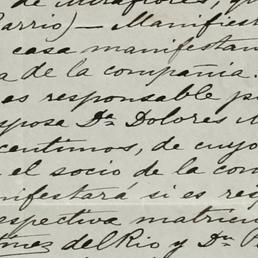 de Miraflores, 
Barrio) — Manifiest
casa manifestan
a de la compañia.
es responsable p
sposa Dª Dolores
centimos, de cuyo
el socio de la com
nifestará si es res
espectiva matric
mez del Rio y Dn